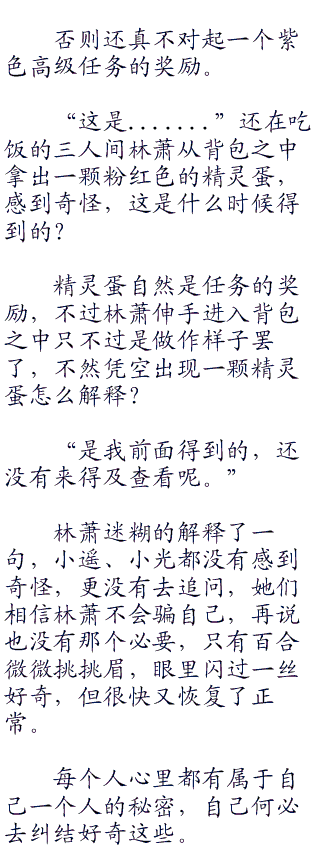 否则还真不对起一个紫
色高级任务的奖励。
“这是.......”还在吃
饭的三人间林萧从背包之中
拿出一颗粉红色的精灵蛋，
感到奇怪，这是什么时候得
到的？
精灵蛋自然是任务的奖
励，不过林萧伸手进入背包
之中只不过是做作样子罢
了，不然凭空出现一颗精灵
蛋怎么解释？
“是我前面得到的，还
没有来得及查看呢。”
林萧迷糊的解释了一
句，小遥、小光都没有感到
奇怪，更没有去追问，她们
相信林萧不会骗自己，再说
也没有那个必要，只有百合
微微挑挑眉，眼里闪过一丝
好奇，但很快又恢复了正
常。
每个人心里都有属于自
己一个人的秘密，自己何必
去纠结好奇这些。